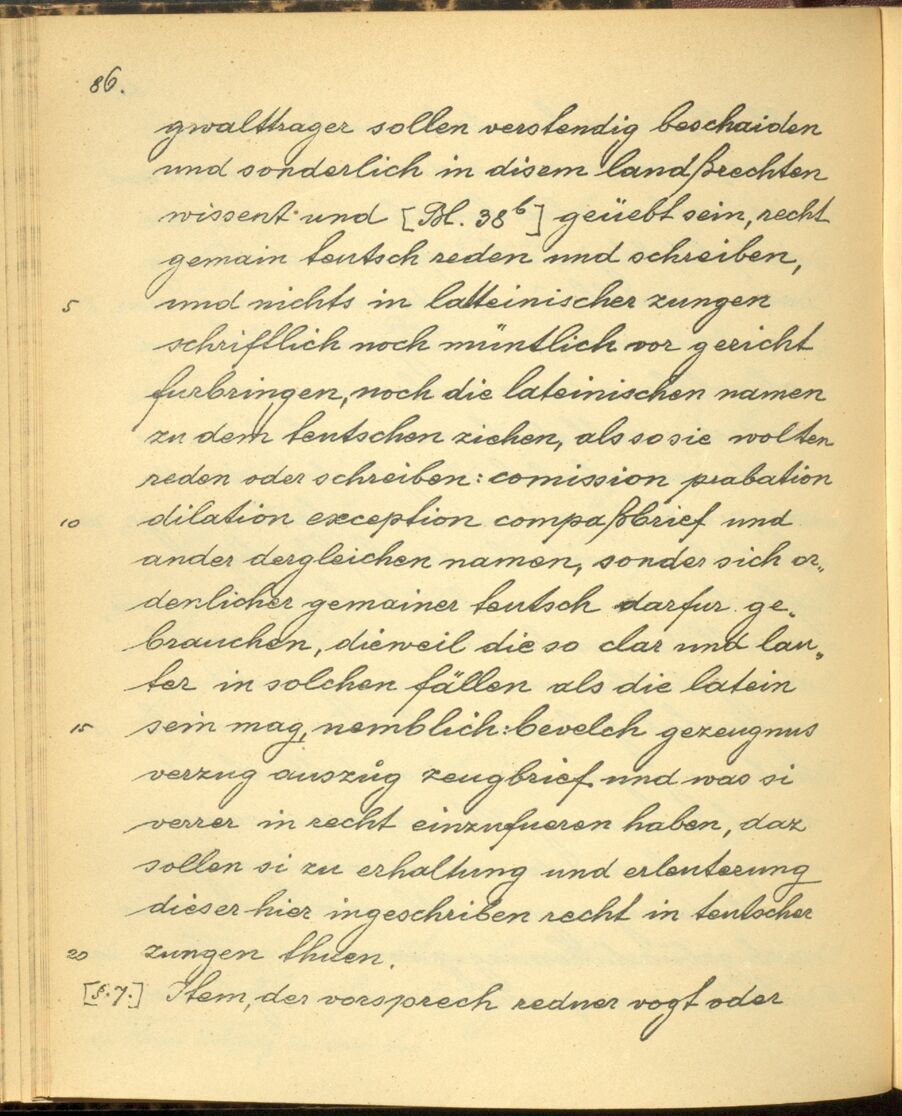 86.
gwalttrager sollen verstendig beschaiden
und sonderlich in disem landßrechten
wissent und [Bl. 38b] geüebt sein, recht
gemain teutsch reden und schreiben,
5 und nichts in latteinischer zungen
schriftlich noch müntlich vor gericht
furbringen, noch die lateinischen namen
zu dem teutschen ziehen, als so sie wolten
reden oder schreiben: comission probation
10 dilation exception compaßbrief und
ander dergleichen namen, sonder sich or„
denlicher gemainer teutsch darfur ge„
brauchen, dieweil die so clar und lau„
ter in solchen fällen als die latein
15 sein mag, nemblich: bevelch gezeugnus
verzug auszůg zeugbrief und was si
verrer in recht einzufueren haben, daz
sollen si zu erhaltung und erleuterung
dieser hier ingeschriben recht in teutscher
20 zungen thuen.
[§. 7.] Item, der vorsprech redner vogt oder